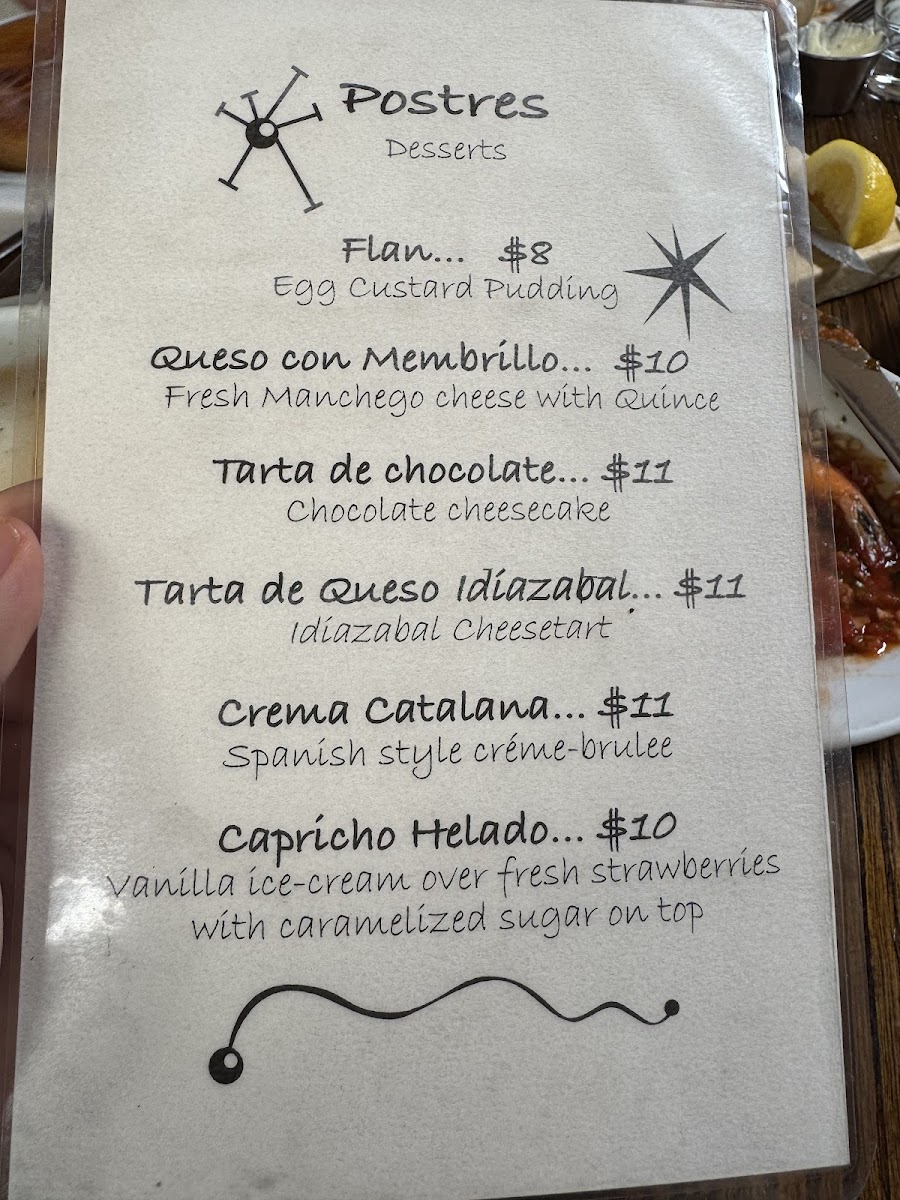 Postres
Desserts
Flan... $8
Egg Custard Pudding
Queso con Membrillo... $10
Fresh Manchego cheese with Quince
Tarta de chocolate... $11
Chocolate cheesecake
Tarta de Queso Idiazabal... $11
Idiazabal Cheesetart
Crema Catalana... $11
Spanish style créme-brulee
Capricho Helado... $10
Vanilla ice-cream over fresh strawberries
with caramelized sugar on top